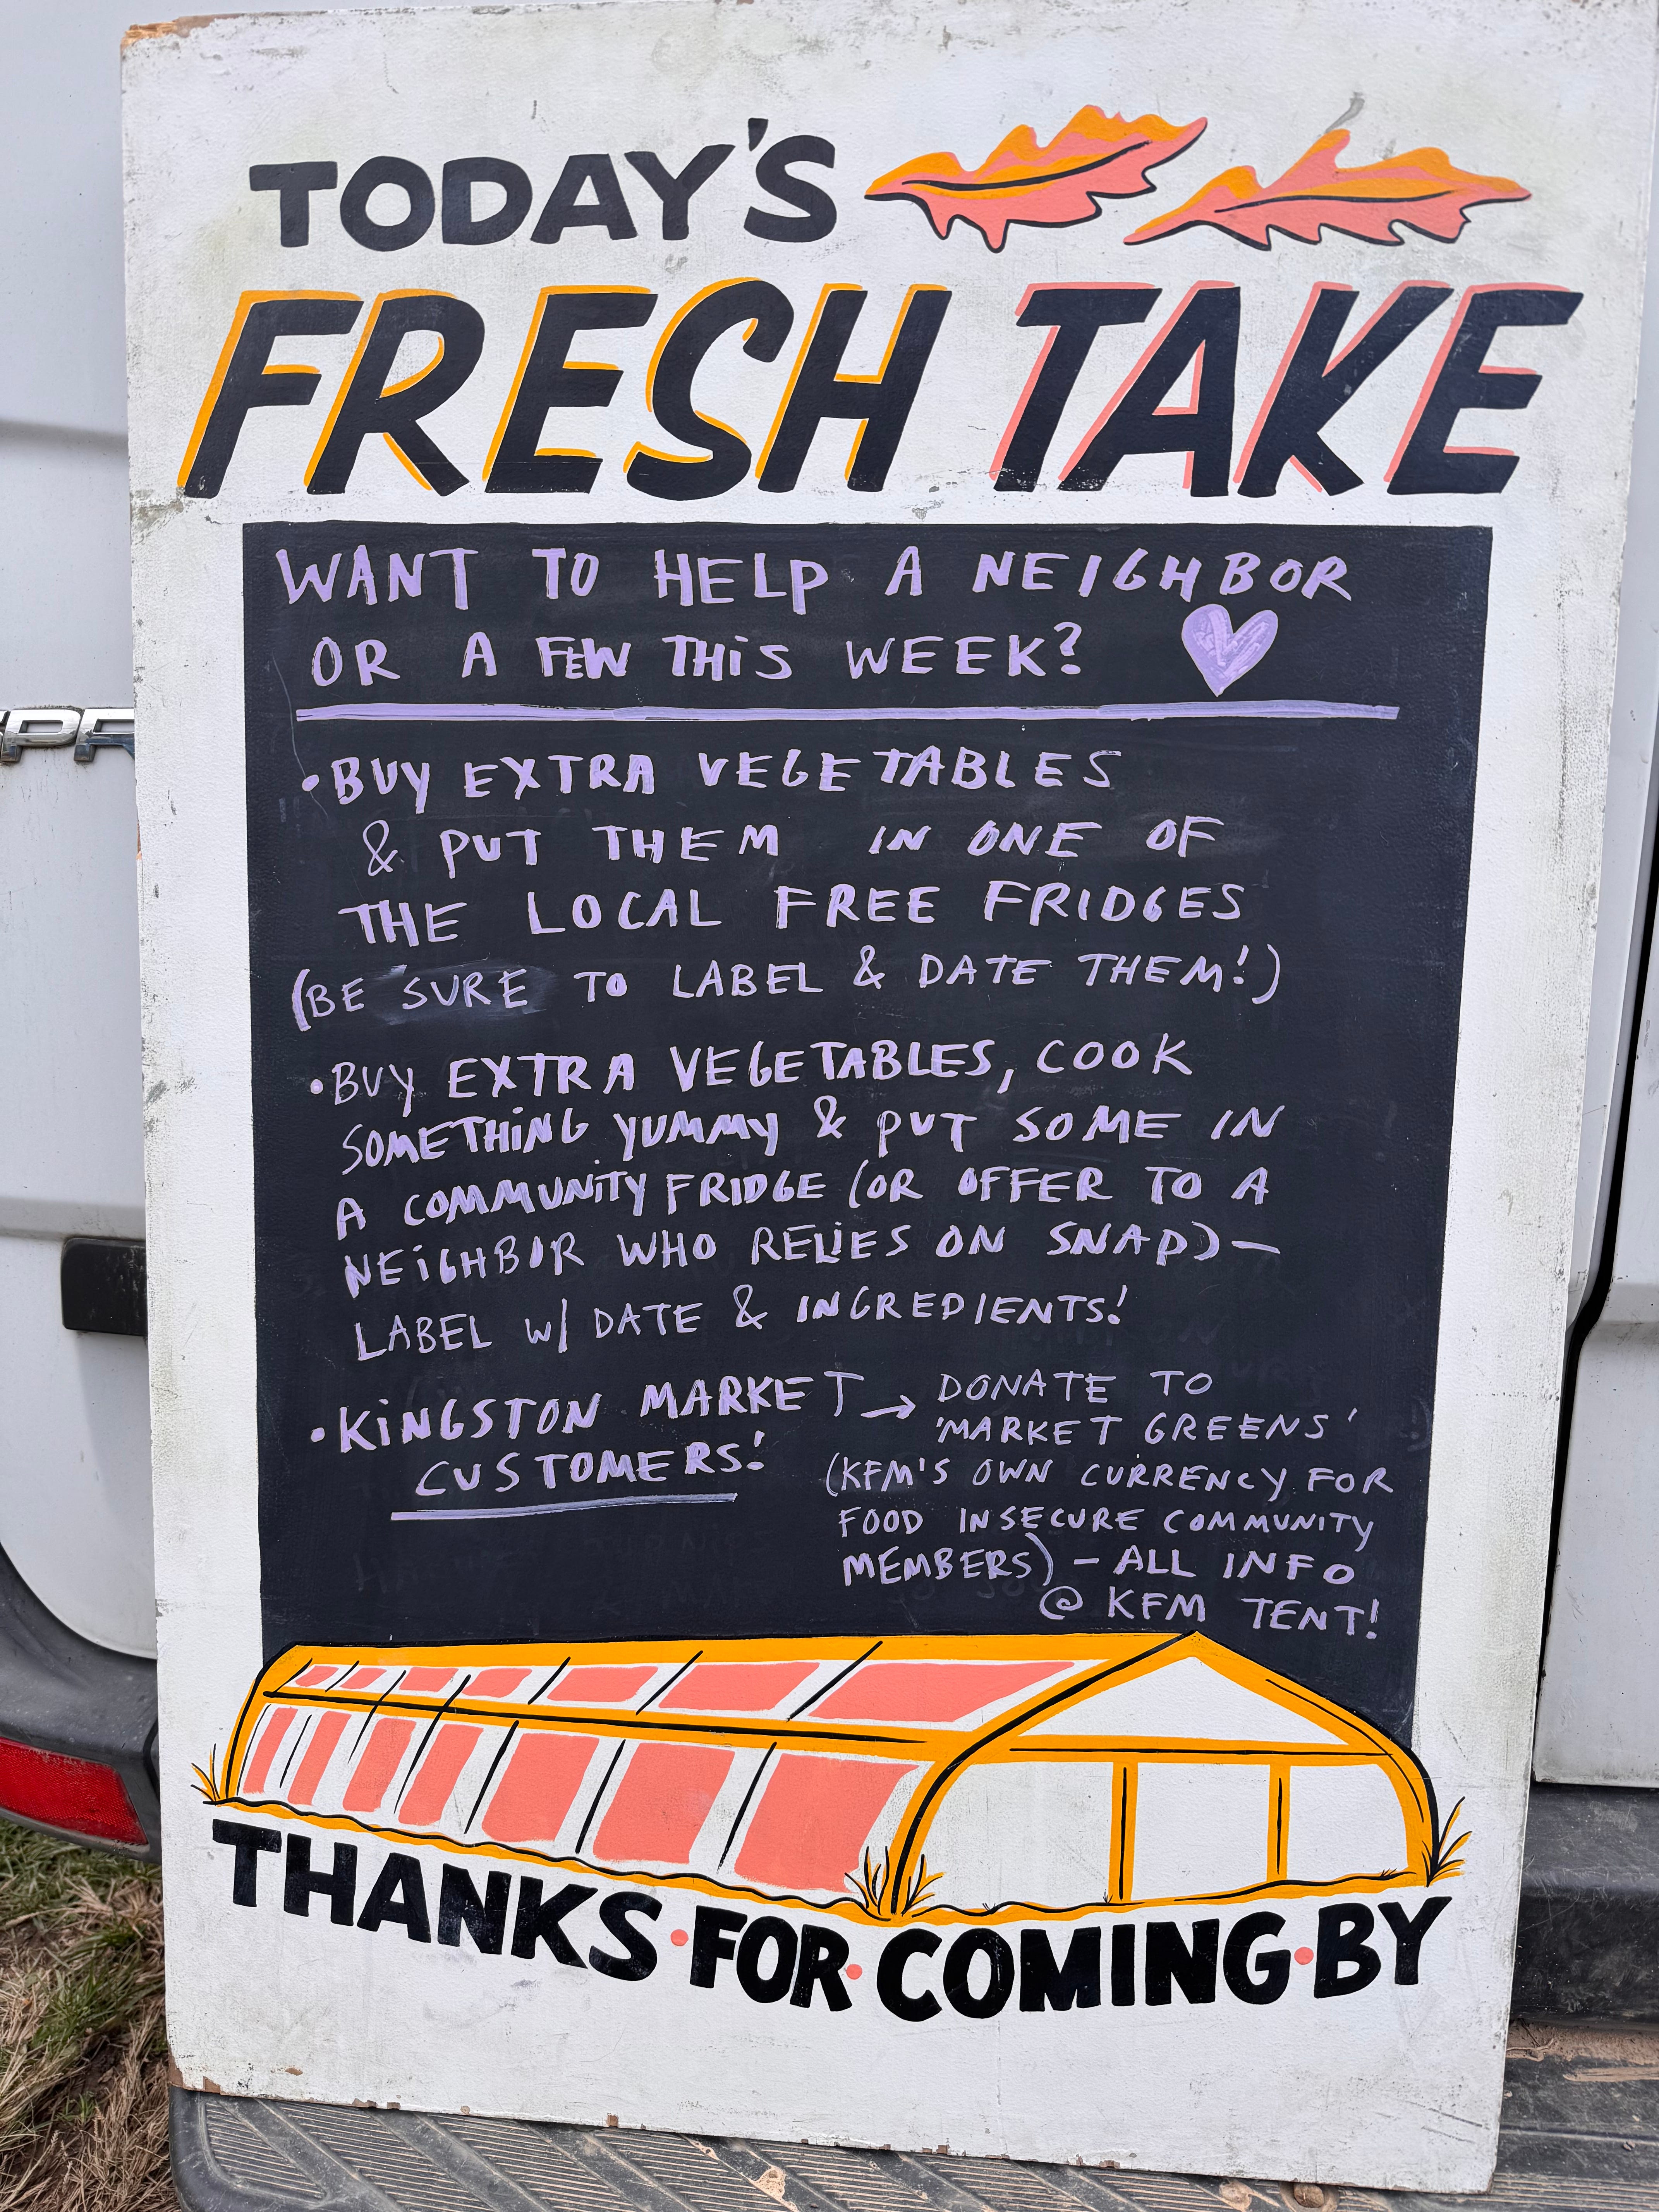 TODAY'S
FRESH TAKE
WANT TO HELP A NEIGHBOR
OR A FEW THIS WEEK?
• BUY EXTRA VEGETABLES
& PUT THEM IN ONE OF
THE LOCAL FREE FRIDGES
(BE SURE TO LABEL & DATE THEM!)
• BUY EXTRA VEGETABLES, COOK
SOMETHING YUMMY & PUT SOME IN
A COMMUNITY FRIDGE (OR OFFER TO A
NEIGHBOR WHO RELIES ON SNAP) –
LABEL W/ DATE & INGREDIENTS!
• KINGSTON MARKET
CUSTOMERS!
→ DONATE TO
'MARKET GREENS'
(KFM'S OWN CURRENCY FOR
FOOD INSECURE COMMUNITY
MEMBERS) – ALL INFO
@ KFM TENT!
THANKS • FOR • COMING • BY